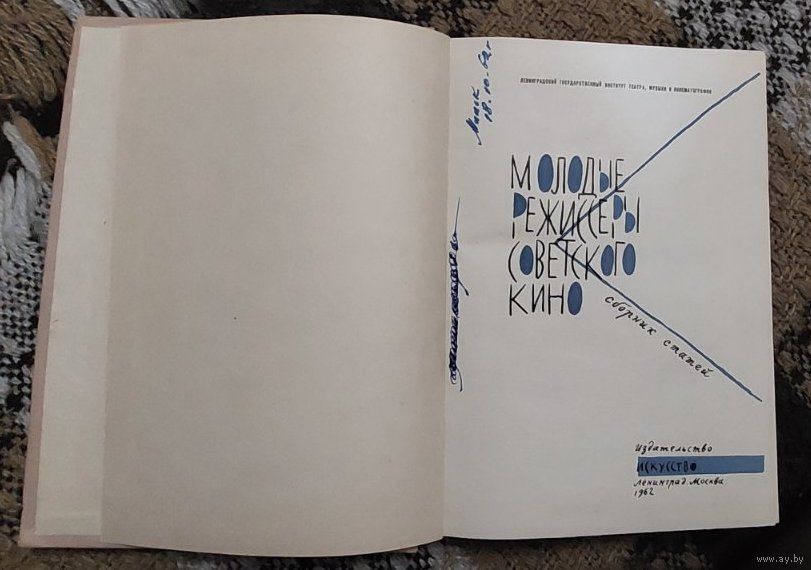 ЛЕНИНГРАДСКИЙ ГОСУДАРСТВЕННЫЙ ИНСТИТУТ ТЕАТРА, МУЗЫКИ И КИНЕМАТОГРАФИИ
Минск
18.10.62г
МОЛОДЫЕ
РЕЖИССЕРЫ
СОВЕТСКОГО
КИНО
сборник статей
Издательство
ИСКУССТВО
Ленинград. Москва
1962
www.ay.by